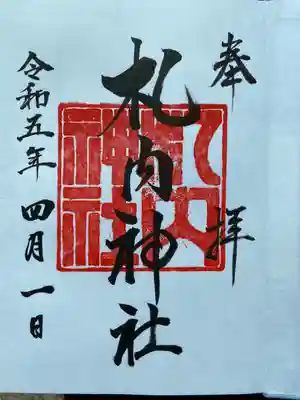 奉拝
札内神社
令和五年 四月一日
札内神社